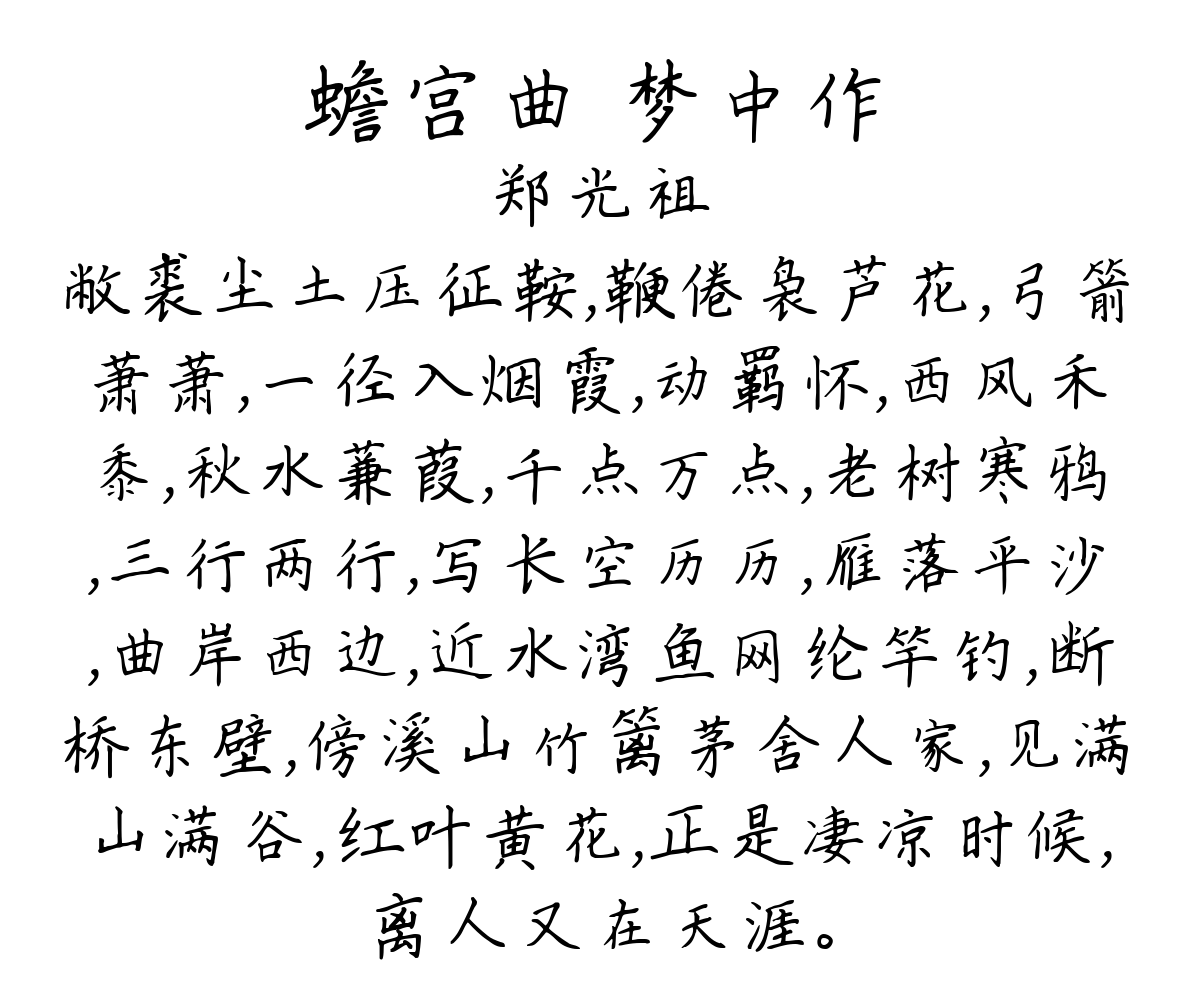 蟾宫曲 梦中作
郑光祖
敝裘尘土压征鞍,鞭倦袅芦花,弓箭
萧萧,一径入烟霞,动羁怀,西风禾
黍,秋水蒹葭,千点万点,老树寒鸦
,三行两行,写长空历历,雁落平沙
,曲岸西边,近水湾鱼网纶竿钓,断
桥东壁,傍溪山竹篱茅舍人家,见满
山满谷,红叶黄花,正是凄凉时候,
离人又在天涯。